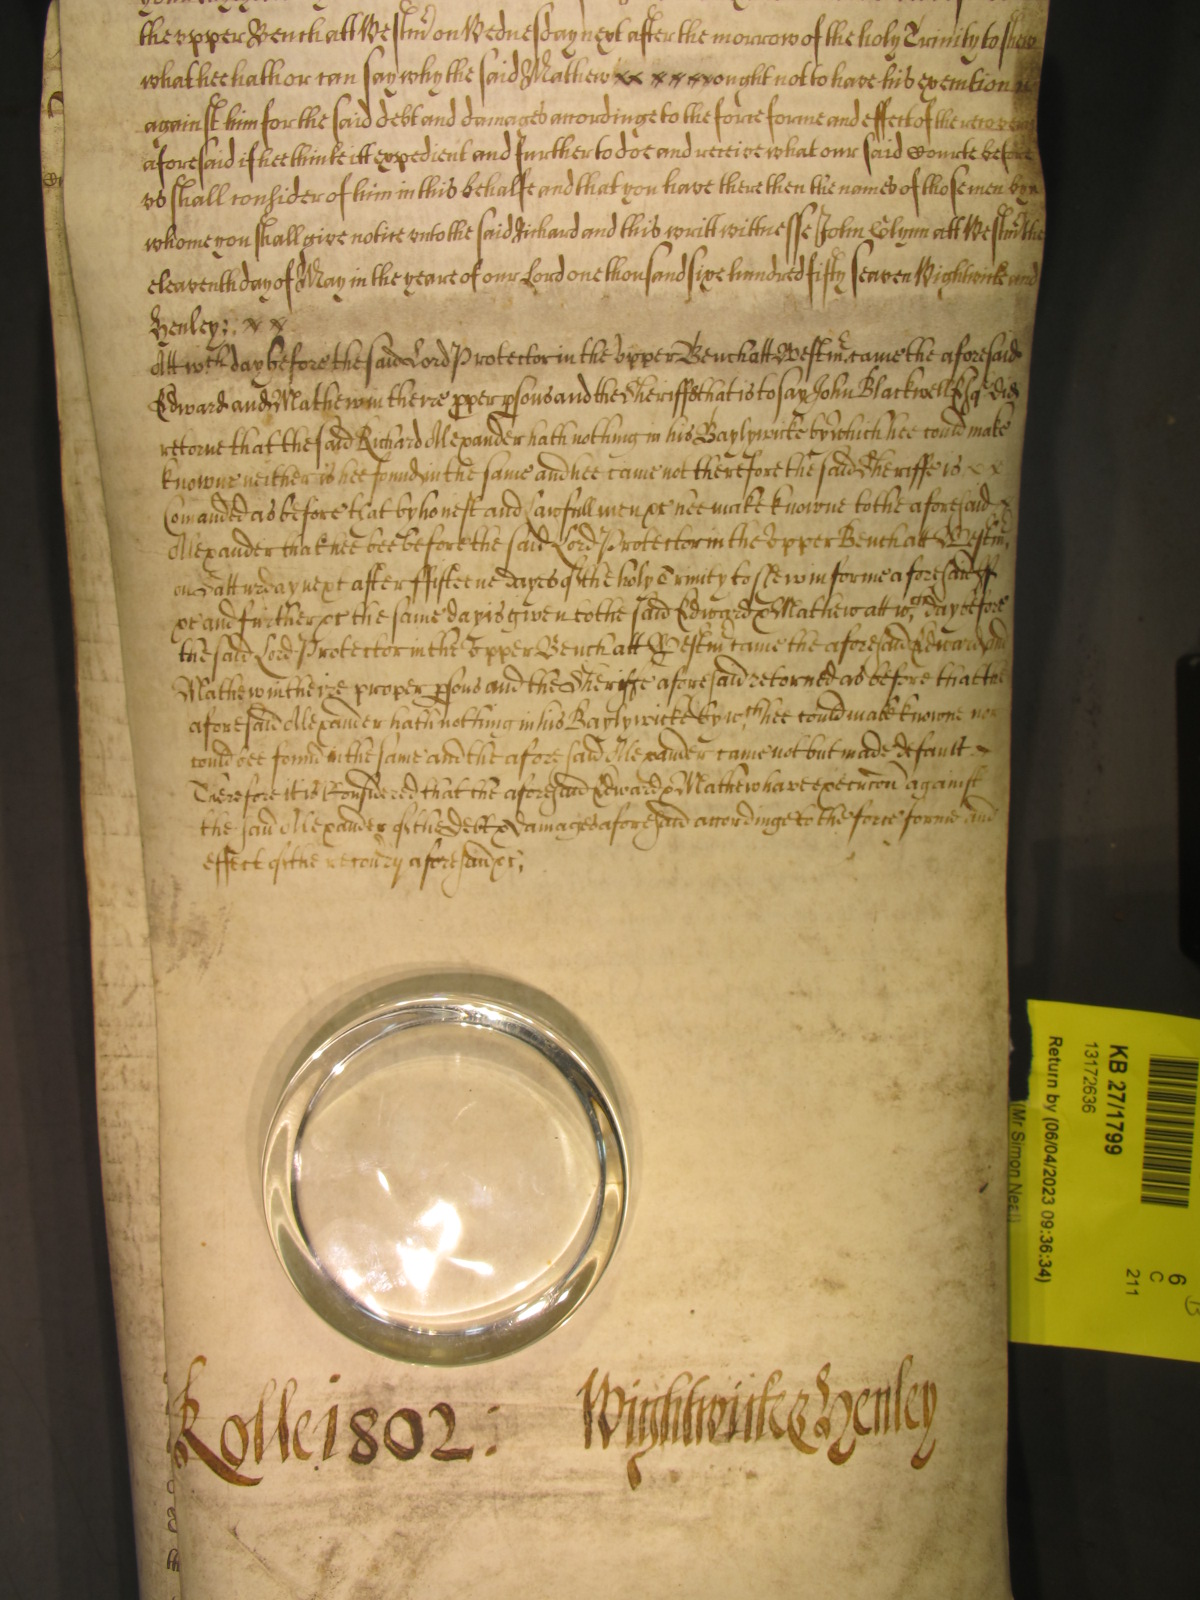 the upper Bench att Westmr on Wednesday next after the morrow of the holy Trinity to shew
what hee hath or can say why the said Mathew xx xxxx ought not to have his execution
against him for the said debt and damages accordinge to the force forme and effect of the recovery
aforesaid if hee thinke itt expedient and further to doe and receive what our said Courte before
us shall consider of him in this behalfe and that you have there then the names of those men by
whome you shall give notice unto the said Richard and this writt wittnesse John Glynn att Westmr the
eleaventh day of May in the yeare of our Lord one thousand sixe hundred fifty seaven Wightwicke and
Henley: x x
Att wch day before the said Lord Protector in the upper Bench att Westmr came the aforesaid
Edward and Mathew in theire pper psons and the Sheriffe that is to say John Blackwell Esqr did
retorne that the said Richard Alexander hath nothing in his Baylywicke by which hee could make
knowne neither is hee found in the same and hee came not therefore the said Sheriffe is x x
Comanded as before that by honest and Lawfull men xc hee make knowne to the aforesaid
Alexander that hee bee before the said Lord Protector in the Upper Bench att Westmr
on Satturday next after fifteene dayes of the holy Trinity to shew in forme aforesaid if
xc and further xc the same day is given to the said Edward & Mathew att wch day before
the said Lord Protector in the Upper Bench att Westmr came the aforesaid Edward and
Mathew in theire proper psons and the Sheriffe aforesaid retorned as before that the
aforesaid Alexander hath nothing in his Baylywicke by wch hee could make knowne nor
could bee found in the same and the aforesaid Alexander came not but made default
Therefore it is Considered that the aforesaid Edward & Mathew have execucon against
the said Alexander of the debt & damages aforesaid accordinge to the force forme and
effect of the recovry aforesaid xc;
Rolle 1802: Wightwicke & Henley
KB 27/1799
13172636
Return by (06/04/2023 09:36:34)
(Mr Simon Neal)
6
C
211